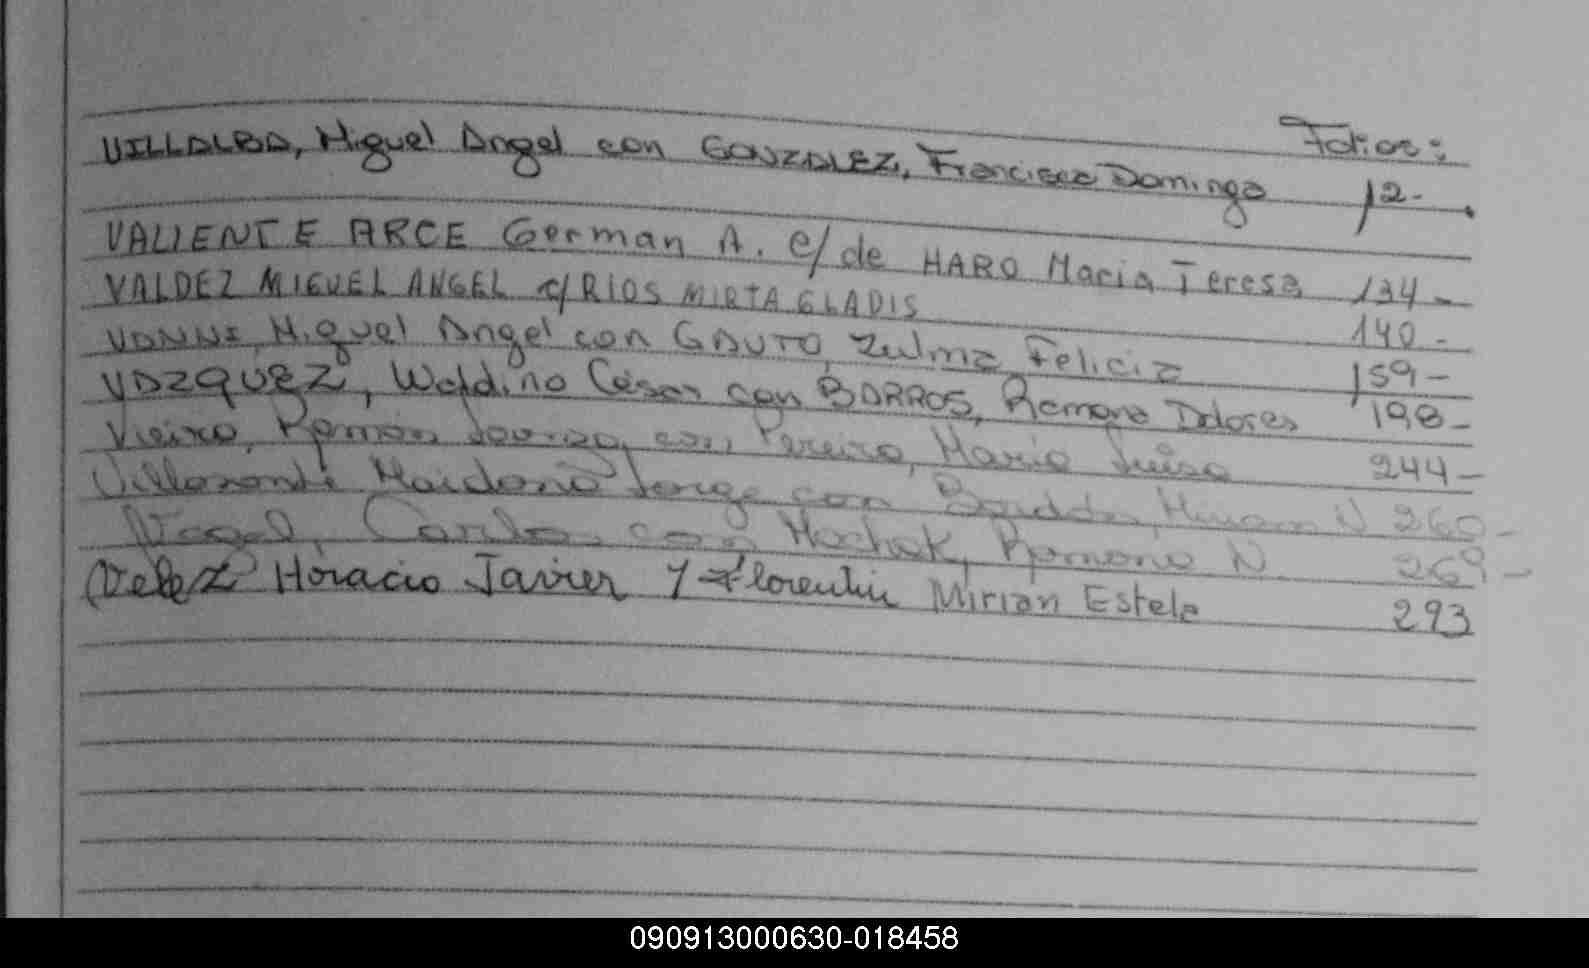 Folios:
VILLALBA, Miguel Angel con GONZALEZ, Francisca Dominga 12-
VALIENTE ARCE German A. c/ de HARO Maria Teresa 134-
VALDEZ MIGUEL ANGEL c/ RIOS MIRTA GLADIS 140-
VANNI, Miguel Angel con GAUTO, Zulma Felicia 159-
VAZQUEZ, Waldino César con BARROS, Ramona Dolores 198-
Vieira, Ramon con Pereira, Maria Luisa 244-
Jorge con Miriam N 260-
Carlos, con Ramona N. 269-
Velez Horacio Javier y Florentin Mirian Estela 293
090913000630-018458